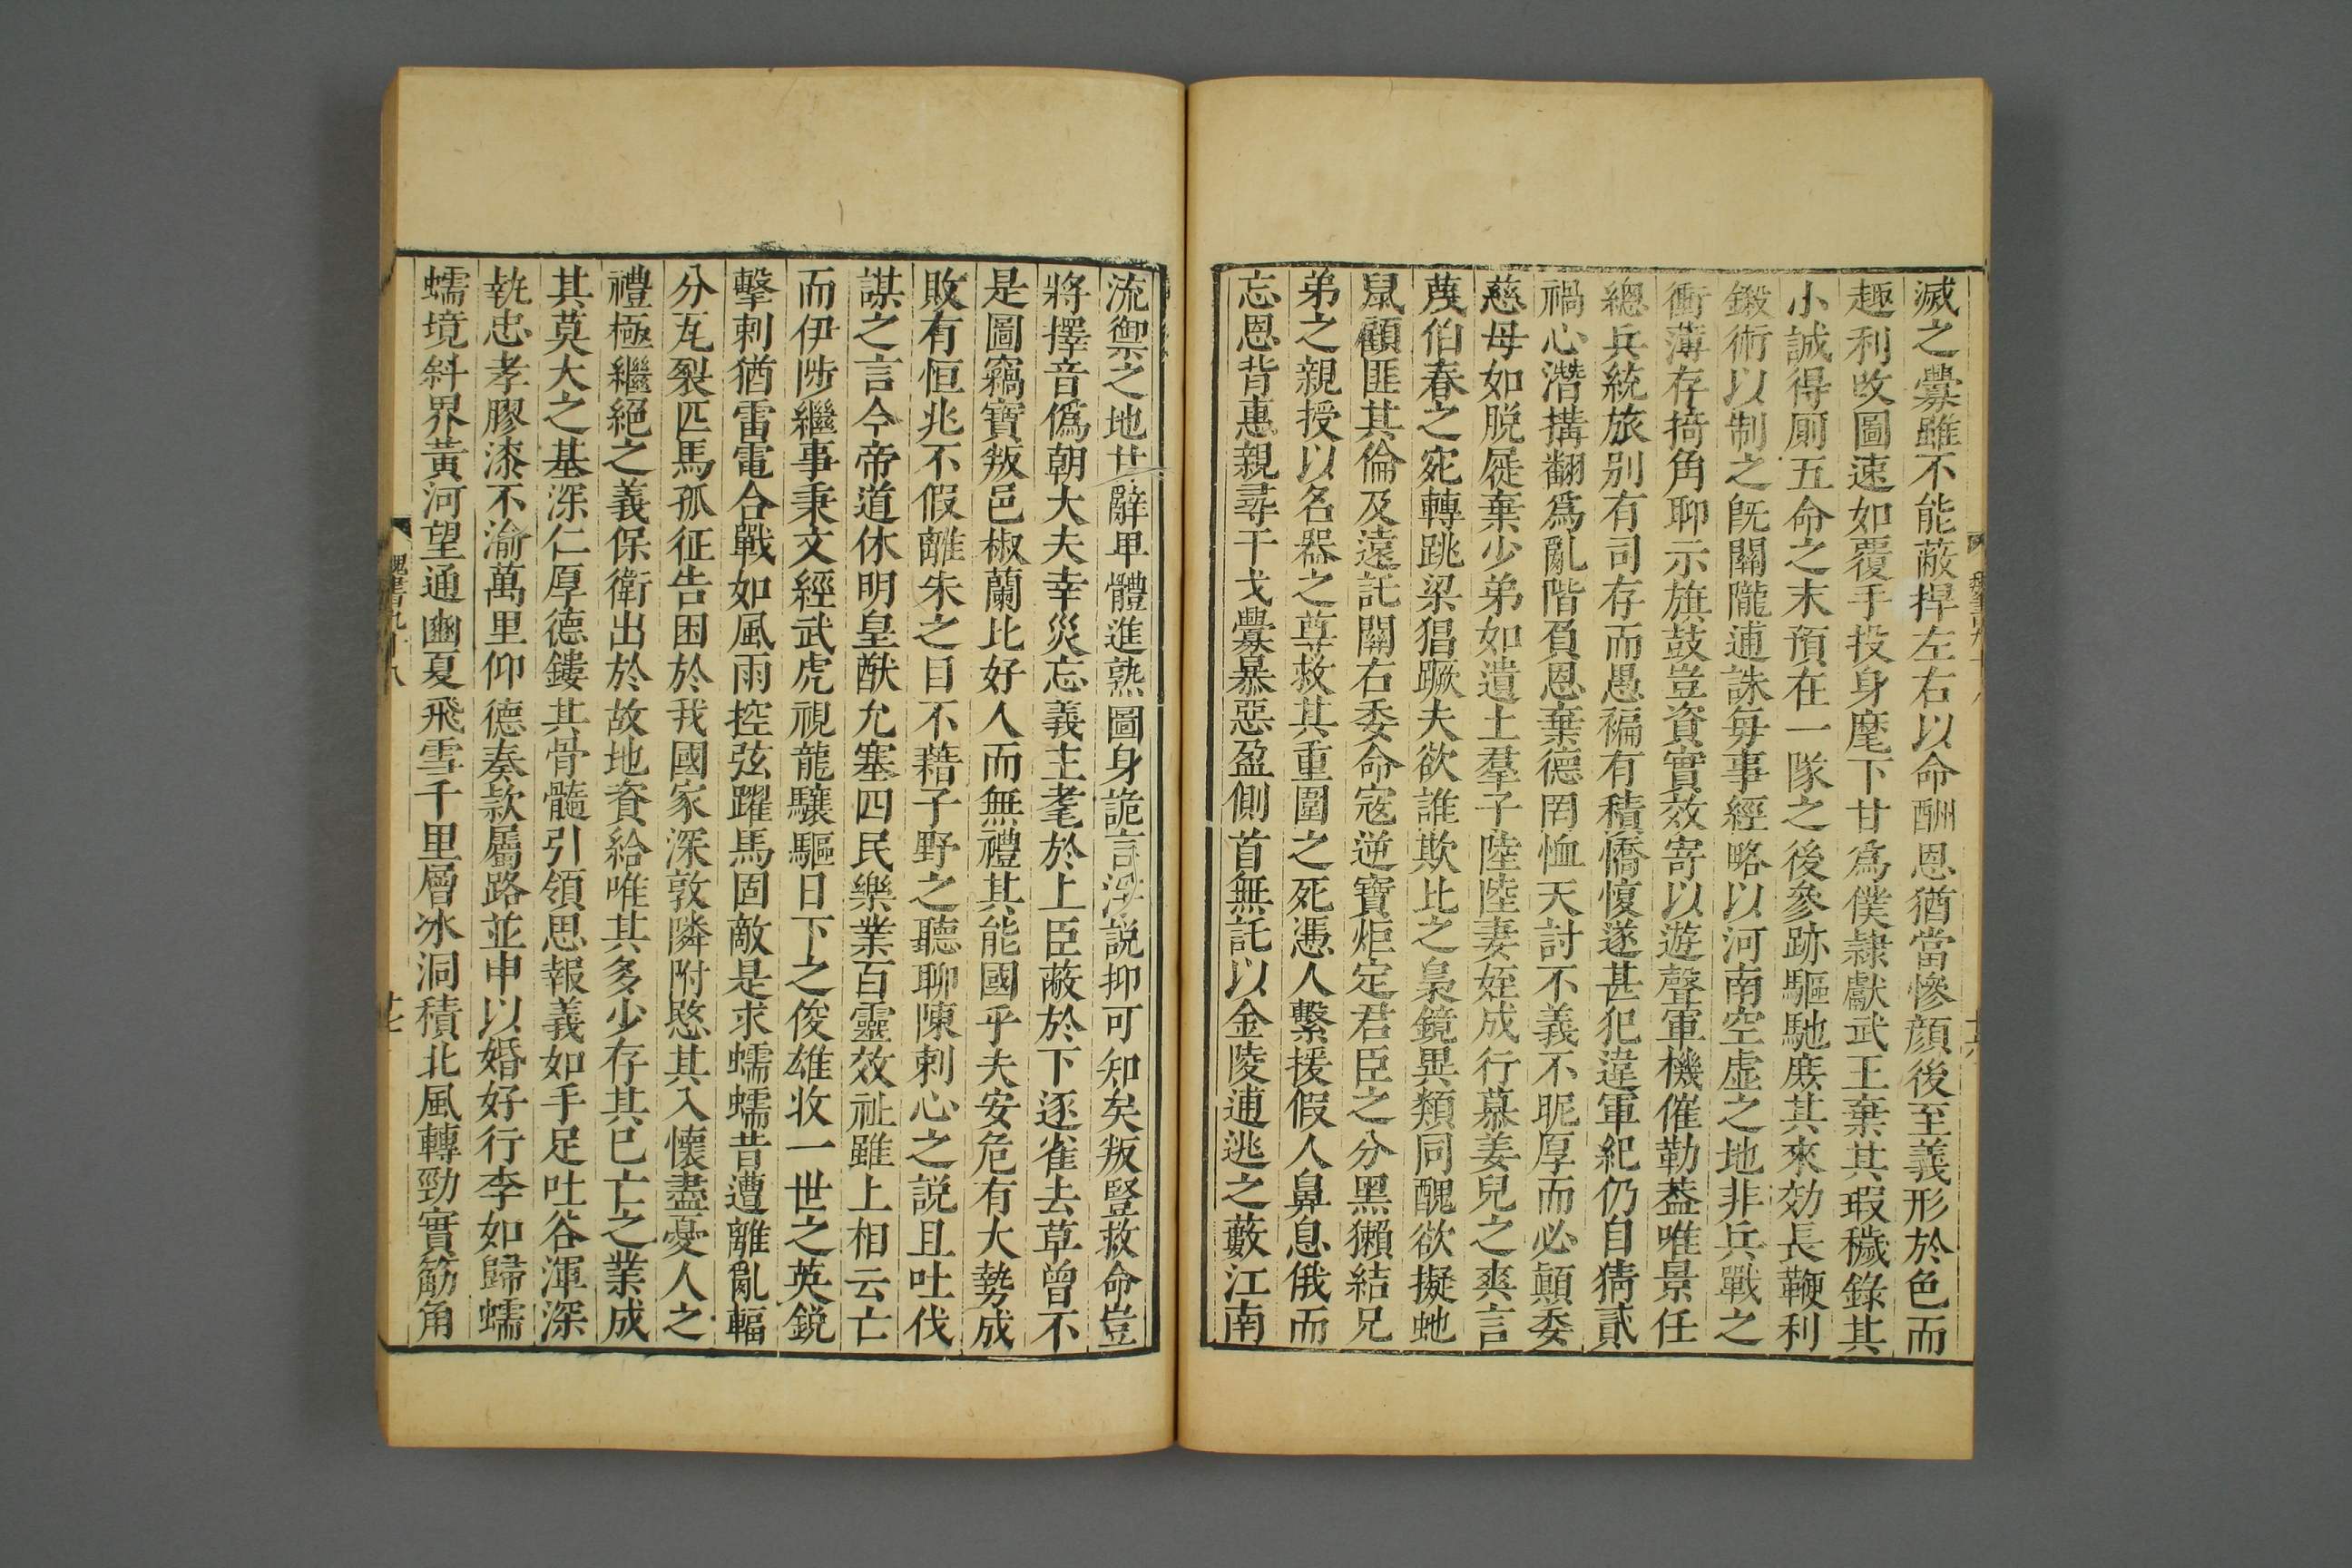 滅之釁雖不能蔽捍左右以命酬恩猶當慘顏後至義形於色而
趣利改圖速如覆手投身麾下甘爲僕隷獻武王棄其瑕穢錄其
小誠得廁五命之末預在一隊之後參跡驅馳庶其來効長鞭利
鍜術以制之旣關隴逋誅每事經略以河南空虛之地非兵戰之
衝薄存掎角聊示旗鼓豈資實效寄以遊聲軍機催勒葢唯景任
總兵統旅别有司存而愚褊有積憍愎遂甚犯違軍紀仍自猜貳
禍心潛搆翻爲亂階負恩棄德罔恤天討不義不昵厚而必顛委
慈母如脱屣棄少弟如遺土羣子陸陸妻姪成行慕姜兒之爽言
蔑伯春之宛轉跳梁猖蹶夫欲誰欺比之梟鏡異類同醜欲擬虵
鼠顧匪其倫及遠託關右委命寇逆寶炬定君臣之分黑獺結兄
弟之親授以名器之尊救其重圍之死憑人繫援假人鼻息俄而
忘恩背惠親尋干戈釁暴惡盈側首無託以金陵逋逃之藪江南
流禦之地甘辭卑體進熟圖身詭言浮説抑可知矣叛豎救命豈
將擇音僞朝大夫幸災忘義主耄於上臣蔽於下逐雀去草曾不
是圖竊寶叛邑椒蘭比好人而無禮其能國乎夫安危有大勢成
敗有恒兆不假離朱之目不藉子野之聽聊陳刺心之説且吐伐
謀之言今帝道休明皇猷允塞四民樂業百靈效祉雖上相云亡
而伊陟繼事秉文經武虎視龍驤驅日下之俊雄收一世之英鋭
擊刺猶雷電合戰如風雨控弦躍馬固敵是求蠕蠕昔遭離亂輻
分瓦裂匹馬孤征告困於我國家深敦隣附愍其入懷盡憂人之
禮極繼絶之義保衛出於故地資給唯其多少存其已亡之業成
其莫大之基深仁厚德鏤其骨髓引領思報義如手足吐谷渾深
執忠孝膠漆不渝萬里仰德奏款屬路並申以婚好行李如歸蠕
蠕境斜界黃河望通豳夏飛雪千里層冰洞積北風轉勁實筋角
魏書九十八
廿七